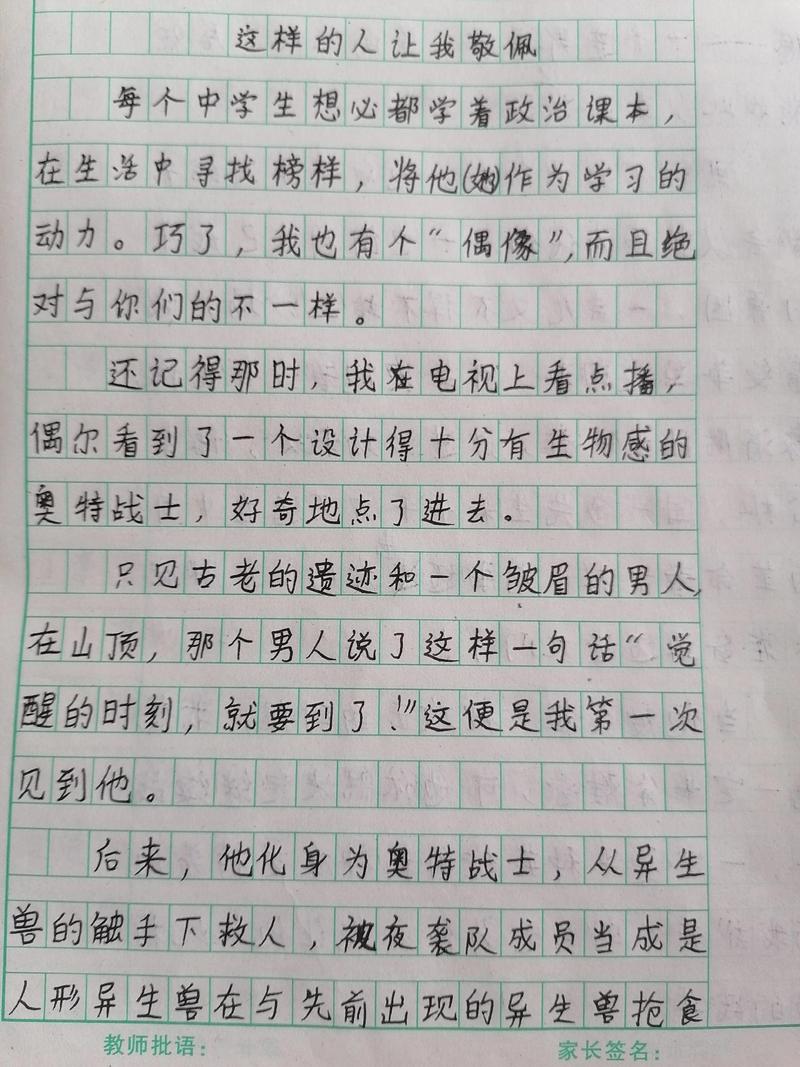 这样的人让我敬佩
每个中学生想必都学着政治课本，
在生活中寻找榜样，将他(她)作为学习的
动力。巧了，我也有个“偶像”,而且绝
对与你们的不一样。
还记得那时，我在电视上看点播，
偶尔看到了一个设计得十分有生物感的
奥特战士，好奇地点了进去。
只见古老的遗迹和一个皱眉的男人,
在山顶，那个男人说了这样一句话“觉
醒的时刻，就要到了！”这便是我第一次
见到他。
后来，他化身为奥特战士，从异生
兽的触手下救人，被夜袭队成员当成是
人形异生兽在与先前出现的异生兽抢食
教师批语：
家长签名：